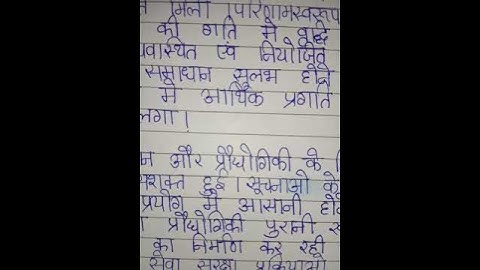 मिला । परिणामस्वरूप
की गति में वृद्धि
एवं नियोजित
समाधान सुलभ होने
में आर्थिक प्रगति
लगा ।
और प्रौद्योगिकी के
हुई । सूचनाओ के
प्रयोग में आसानी
प्रौद्योगिकी पुरानी
का निर्माण कर रही
सेवा सुरक्षा प्रक्रियाओ